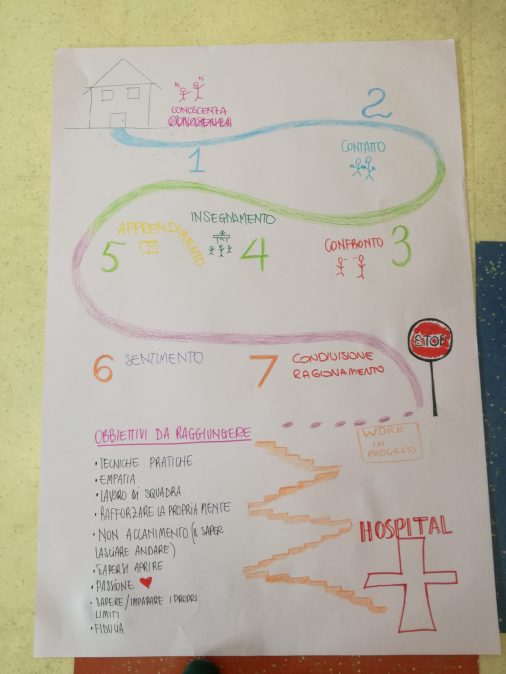 CONOSCENZA
1
2
CONTATTO
3
CONFRONTO
INSEGNAMENTO
4
APPRENDIMENTO
5
6 SENTIMENTO
7 CONDIVISIONE
RAGIONAMENTO
STOP
WORK
IN
PROGRESS
OBBIETTIVI DA RAGGIUNGERE
• TECNICHE PRATICHE
• EMPATIA
• LAVORO DI SQUADRA
• RAFFORZARE LA PROPRIA MENTE
• NON ACCANIMENTO (IL SAPER
LASCIARE ANDARE)
• SAPERSI APRIRE
• PASSIONE ❤
• SAPERE/IMPARARE I PROPRI
LIMITI
• FIDUCIA
HOSPITAL